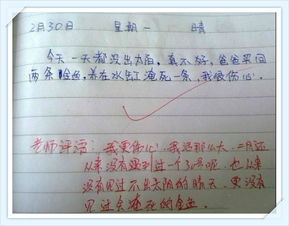 2月30日 星期一 晴
今天一天都没出太阳，真不好。爸爸买回
两条金鱼，养在水缸淹死一条，我很伤心。
老师评语：我更伤心，我活那么大，二月还
从来没有遇到过一个30号呢，也从来
没有见过不出太阳的晴天，更没有
见过会淹死的金鱼。